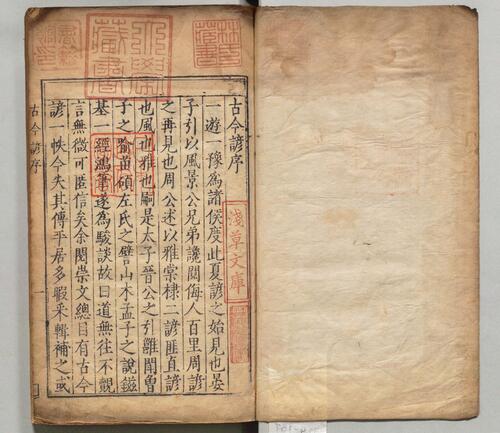 古今諺序
一遊一豫為諸侯度此夏諺之始見也晏
子引以風景公兄弟讒鬩侮人百里周諺
之再見也周公述以雅棠棣二諺匪直諺
也風也雅也嗣是太子晉公之引雖聞曾
子之喻苗碩左氏之譬山木孟子之說鎡
基經鴻筆遂為駿談故曰道無往不覿
言無微可匿信矣余閱崇文總目有古今
諺一帙今失其傳平居多暇采輯補之或
古今諺序
淺草文庫
藏書